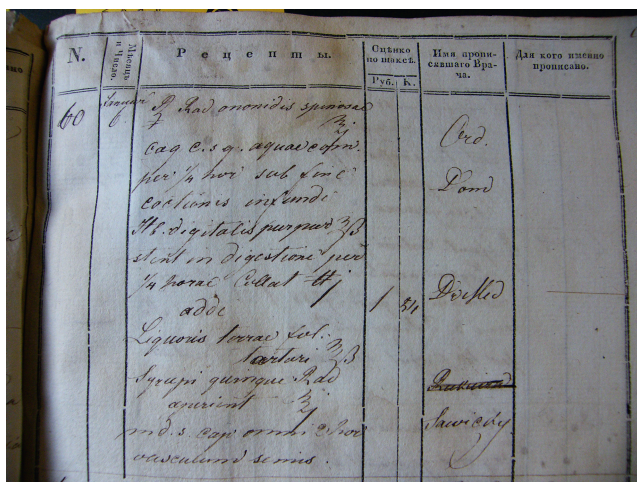 N.
Мѣсяцъ и Число.
Рецепты.
Оцѣнко по таксѣ.
Руб. К.
Имя прописавшаго Врача.
Для кого именно прописано.
60
6.
Rad ononidis spinosae
coq c. s. q. aquae com.
per 1/4 hor sub fine
coctionis infunde
Hb. digitalis purpur ʒβ
stent in digestione per
1/4 horae Collat ℔j
adde
Liquoris terrae fol.
tartari ʒβ
Syrupi quinque Rad
aperient
m d. s. cap omni 2 hor
vasculum semis.
1
Ord.
Dom
Dr Med
Sawicky